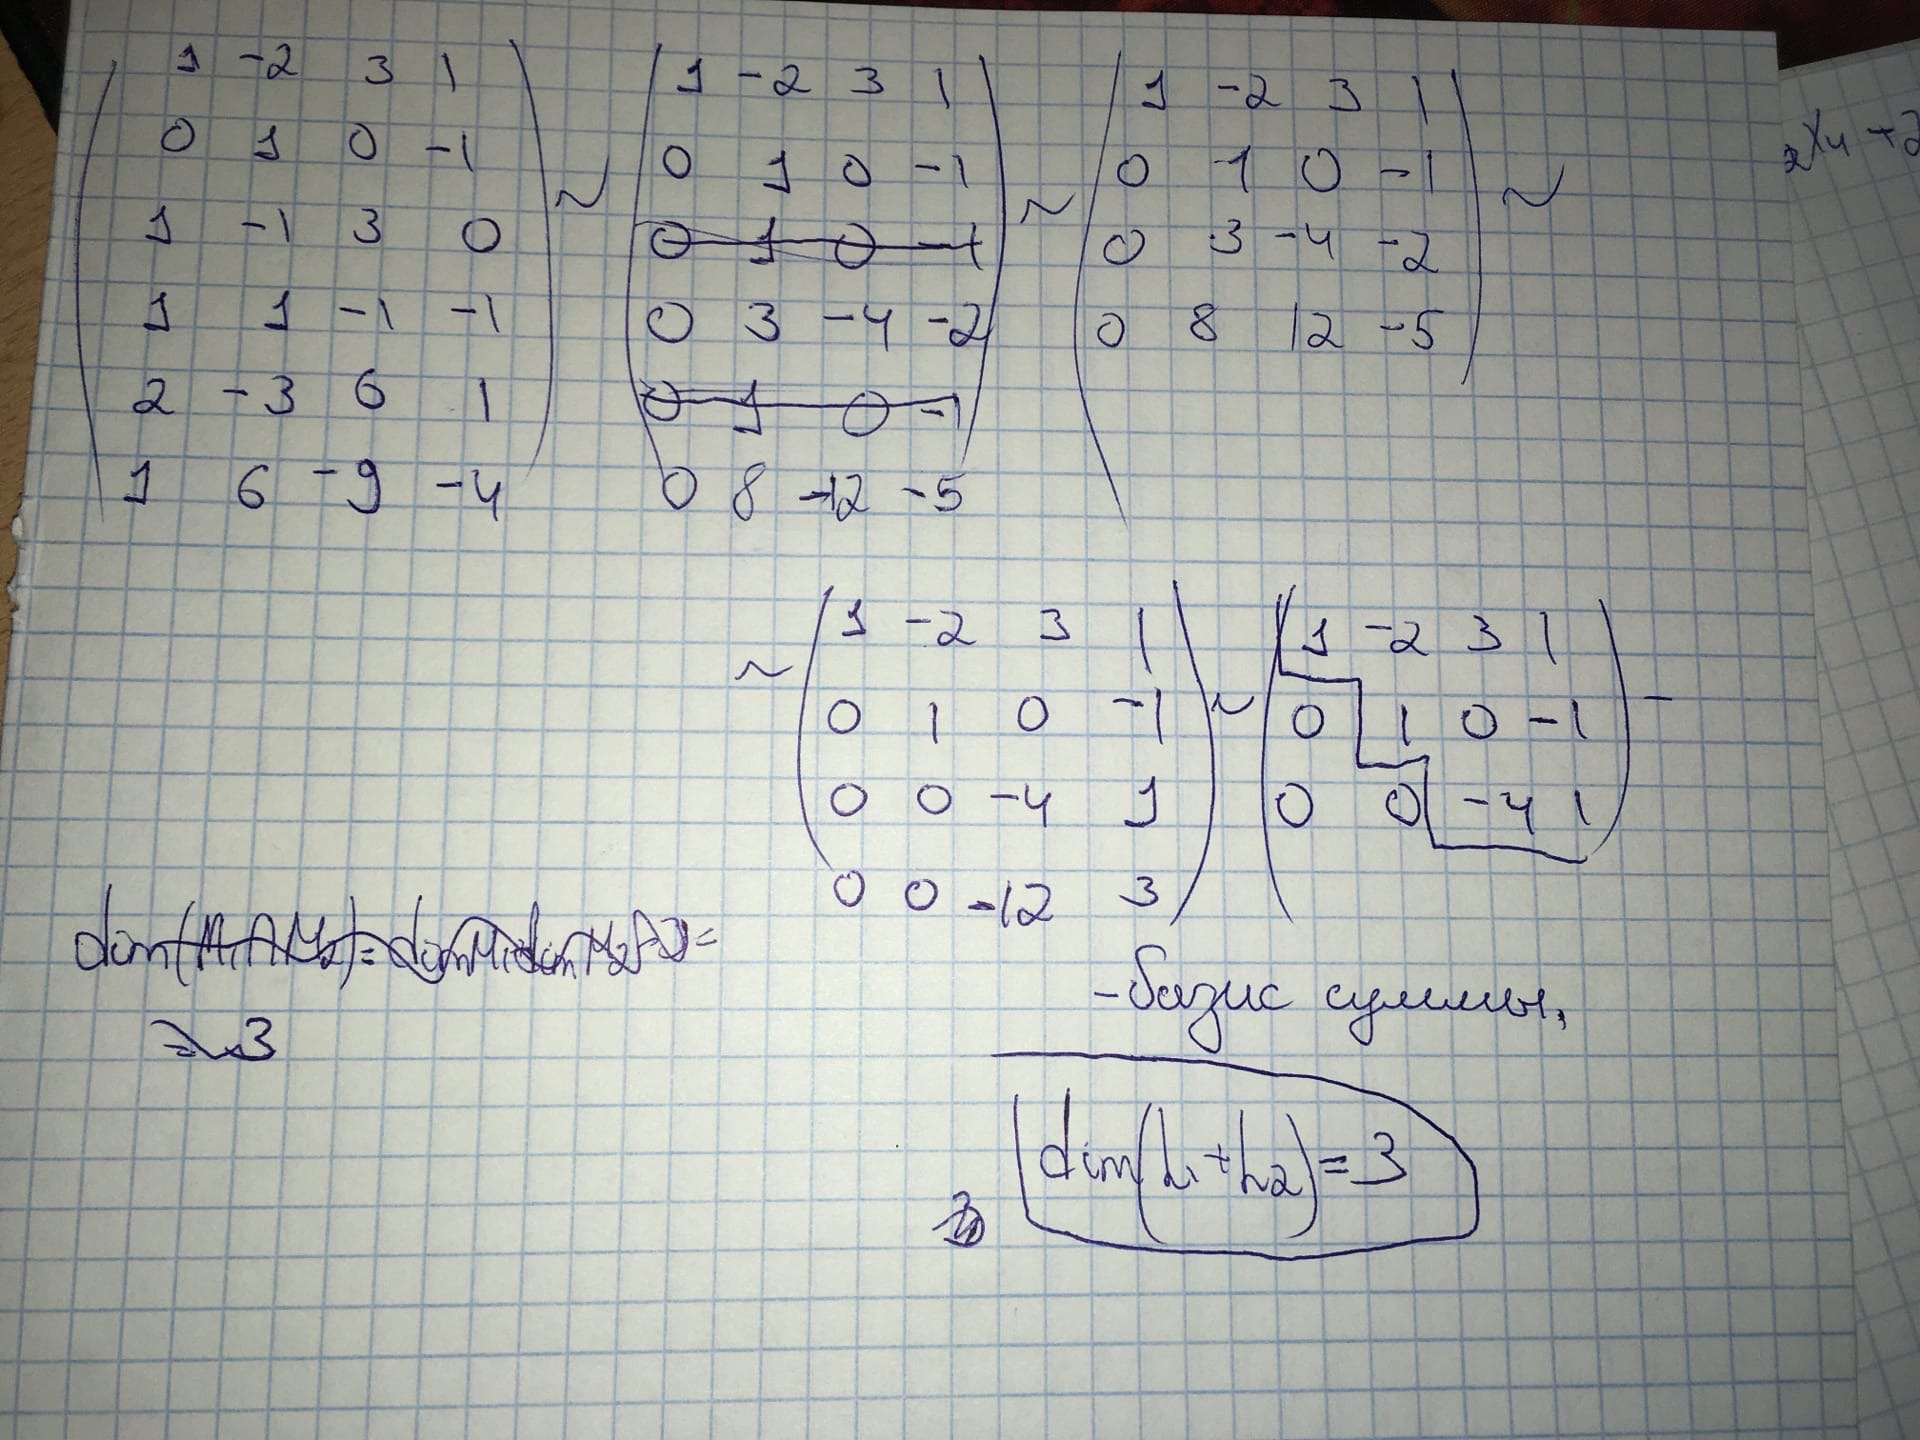 1 -2 3 1
0 1 0 -1
1 -1 3 0
1 1 -1 -1
2 -3 6 1
1 6 -9 -4
~
1 -2 3 1
0 1 0 -1
0 1 0 -1
0 3 -4 -2
0 1 0 -1
0 8 -12 -5
~
1 -2 3 1
0 1 0 -1
0 3 -4 -2
0 8 12 -5
~
~
1 -2 3 1
0 1 0 -1
0 0 -4 1
0 0 -12 3
~
1 -2 3 1
0 1 0 -1
0 0 -4 1
-
- базис суммы,
dim(L1+L2)=3